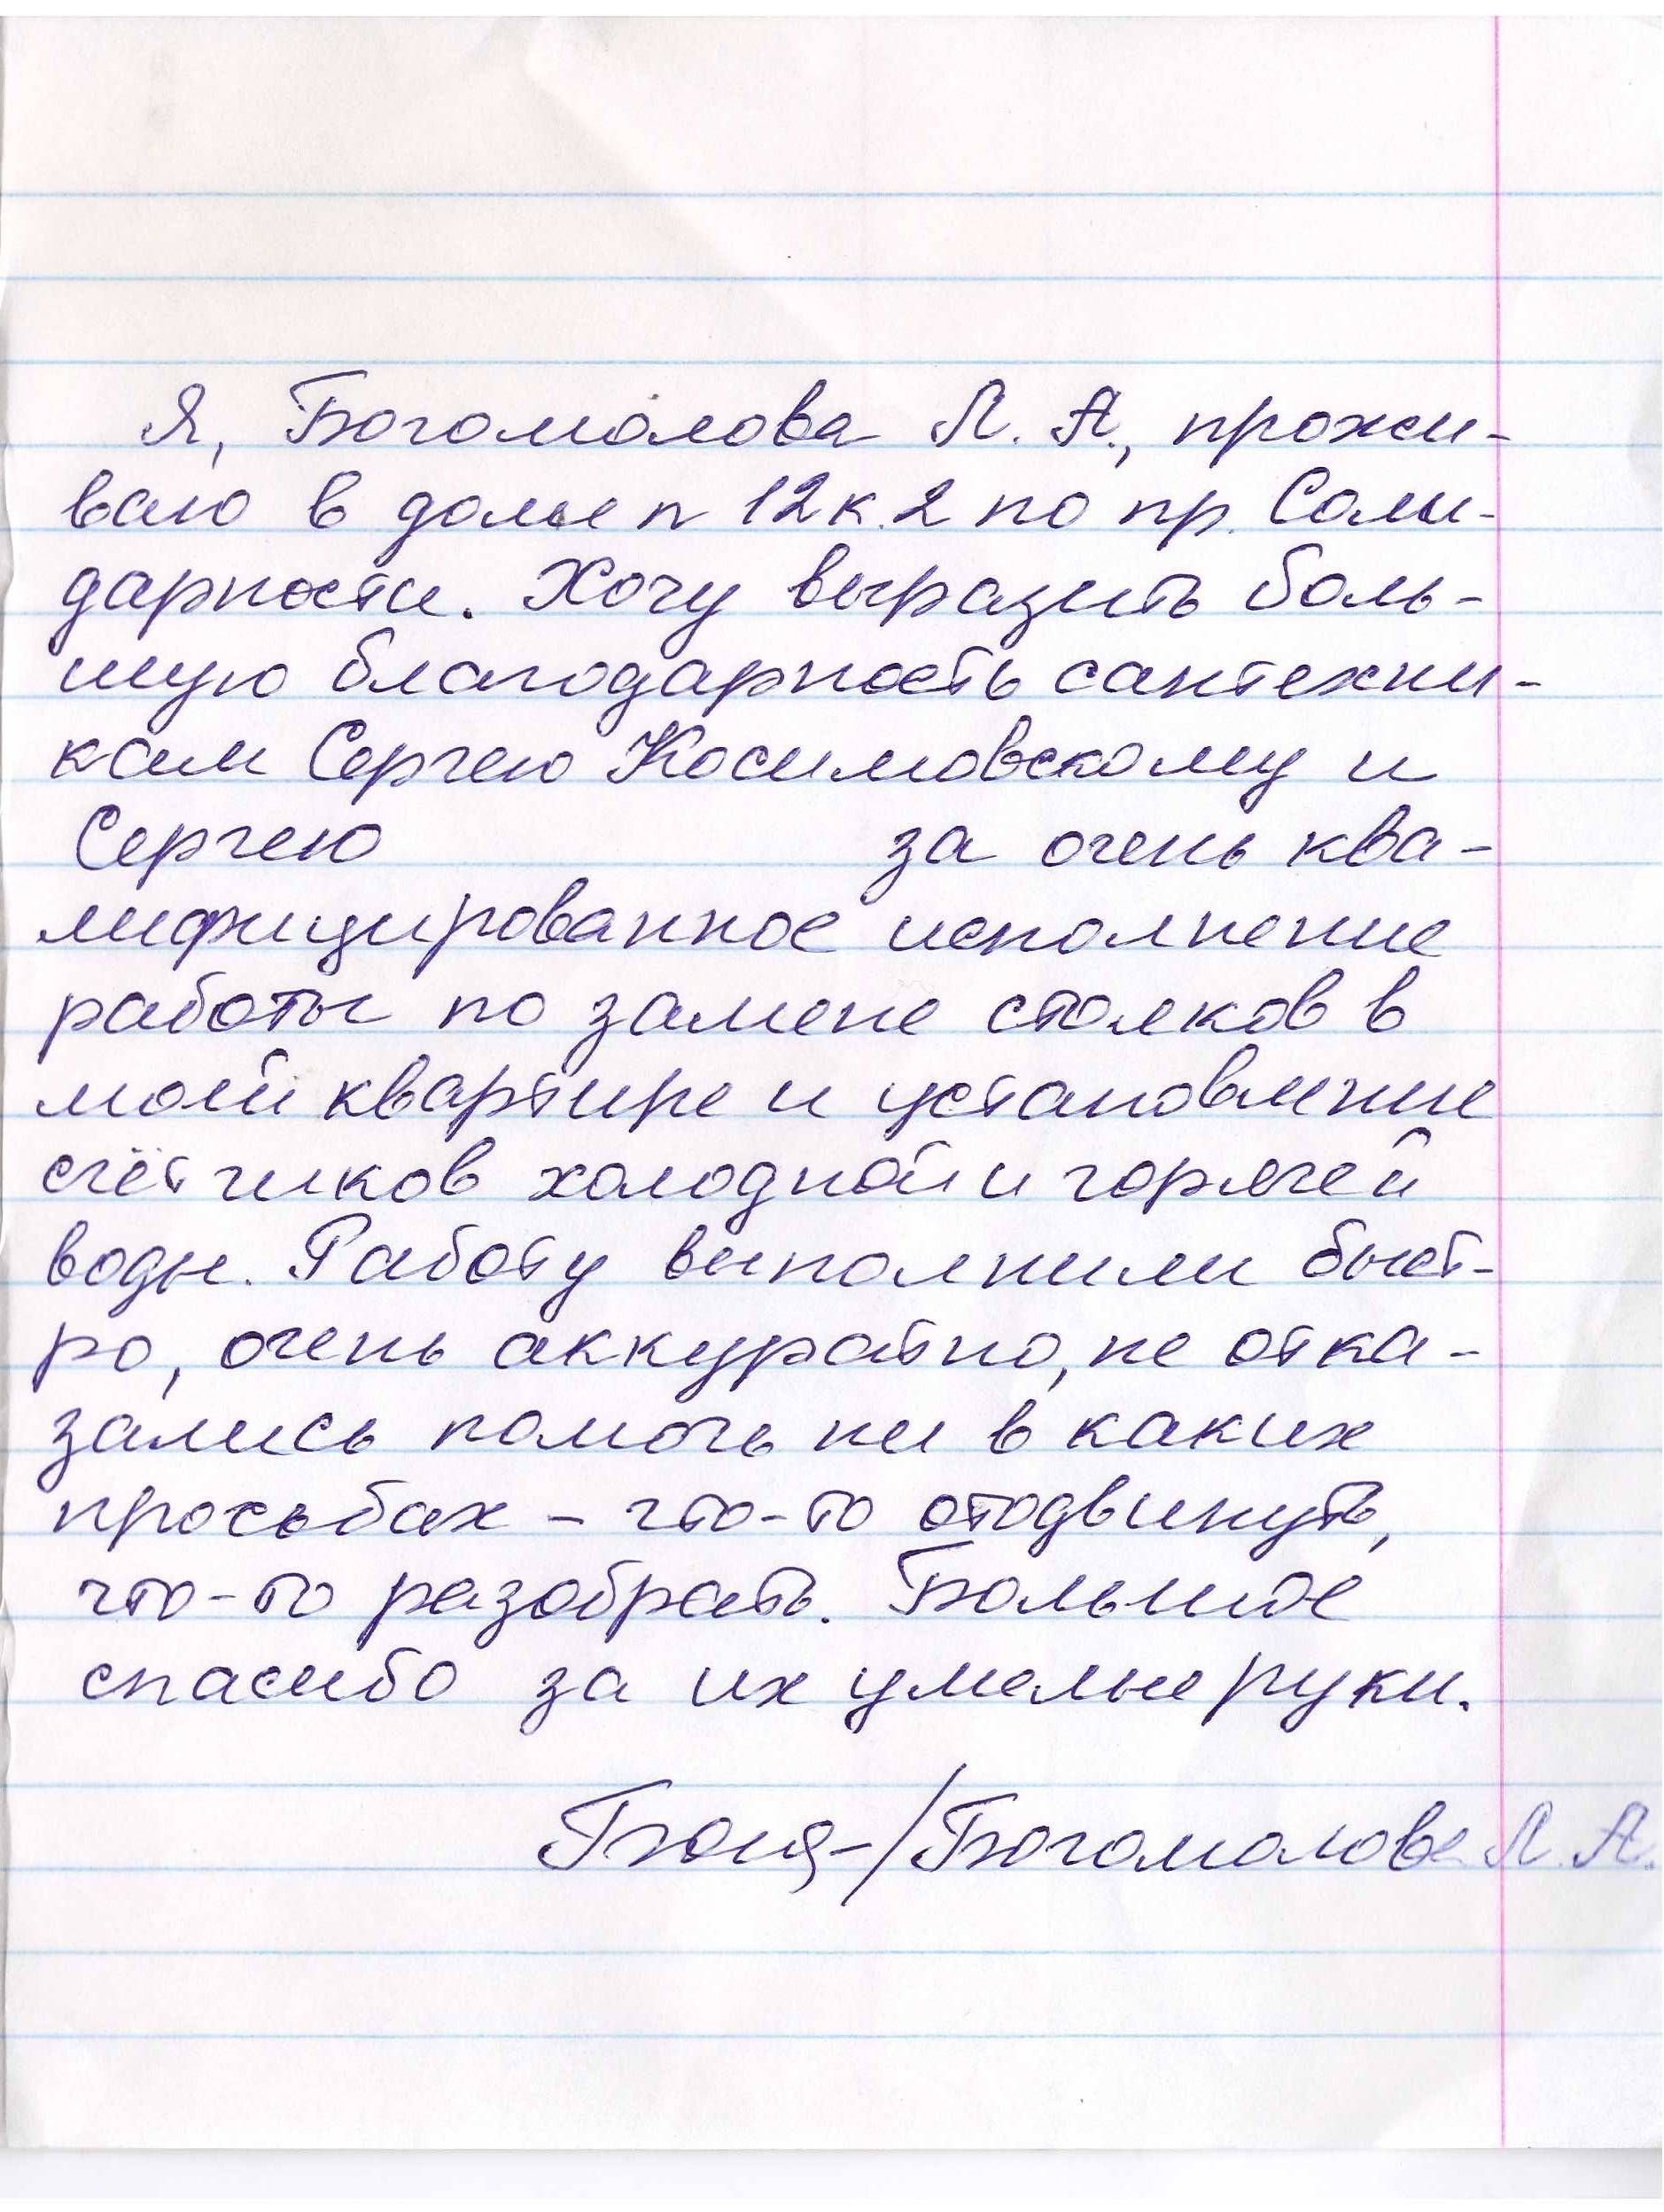 Я, Богомолова Л. А., прожи-
ваю в доме п 12 к. 2 по пр. Соли-
дарности. Хочу выразить боль-
шую благодарность сантехни-
кам Сергею Косимовскому и
Сергею за очень ква-
лифицированное исполнение
работы по замене стояков в
моей квартире и установление
счётчиков холодной и горячей
воды. Работу выполнили быст-
ро, очень аккуратно, не отка-
зались помочь ни в каких
просьбах – что-то отодвинуть,
что-то разобрать. Большое
спасибо за их умелые руки.
/Богомолова Л. А.